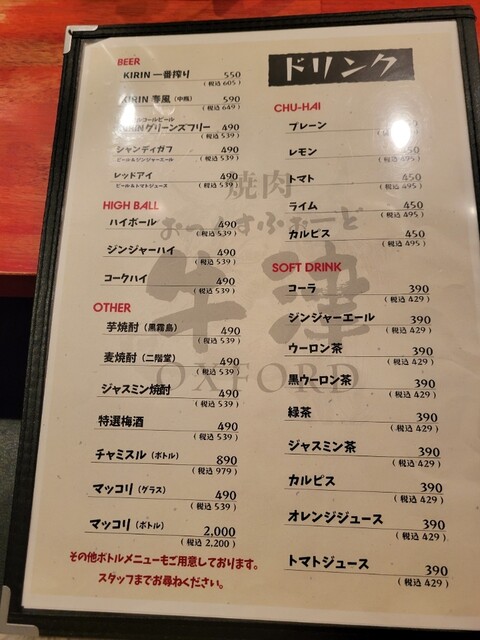 ドリンク
BEER
KIRIN 一番搾り 550
(税込 605)
KIRIN 春風 (中瓶) 590
(税込 649)
グリーンズフリー 490
(税込 539)
シャンディガフ 490
ビール&ジンジャーエール (税込 539)
レッドアイ 490
ビール&トマトジュース (税込 539)
HIGH BALL
ハイボール 490
(税込 539)
ジンジャーハイ 490
(税込 539)
コークハイ 490
(税込 539)
OTHER
芋焼酎 (黒霧島) 490
(税込 539)
麦焼酎 (二階堂) 490
(税込 539)
ジャスミン焼酎 490
(税込 539)
特選梅酒 490
(税込 539)
チャミスル (ボトル) 890
(税込 979)
マッコリ (グラス) 490
(税込 539)
マッコリ (ボトル) 2,000
(税込 2,200)
その他ボトルメニューもご用意しております。
スタッフまでお尋ねください。
CHU-HAI
プレーン
レモン
495)
トマト 450
(税込 495)
ライム 450
(税込 495)
カルピス 450
(税込 495)
SOFT DRINK
コーラ 390
(税込 429)
ジンジャーエール 390
(税込 429)
ウーロン茶 390
(税込 429)
黒ウーロン茶 390
(税込 429)
緑茶 390
(税込 429)
ジャスミン茶 390
(税込 429)
カルピス 390
(税込 429)
オレンジジュース 390
(税込 429)
トマトジュース 390
(税込 429)
焼肉
おっくすふぉーど
牛津
OXFORD